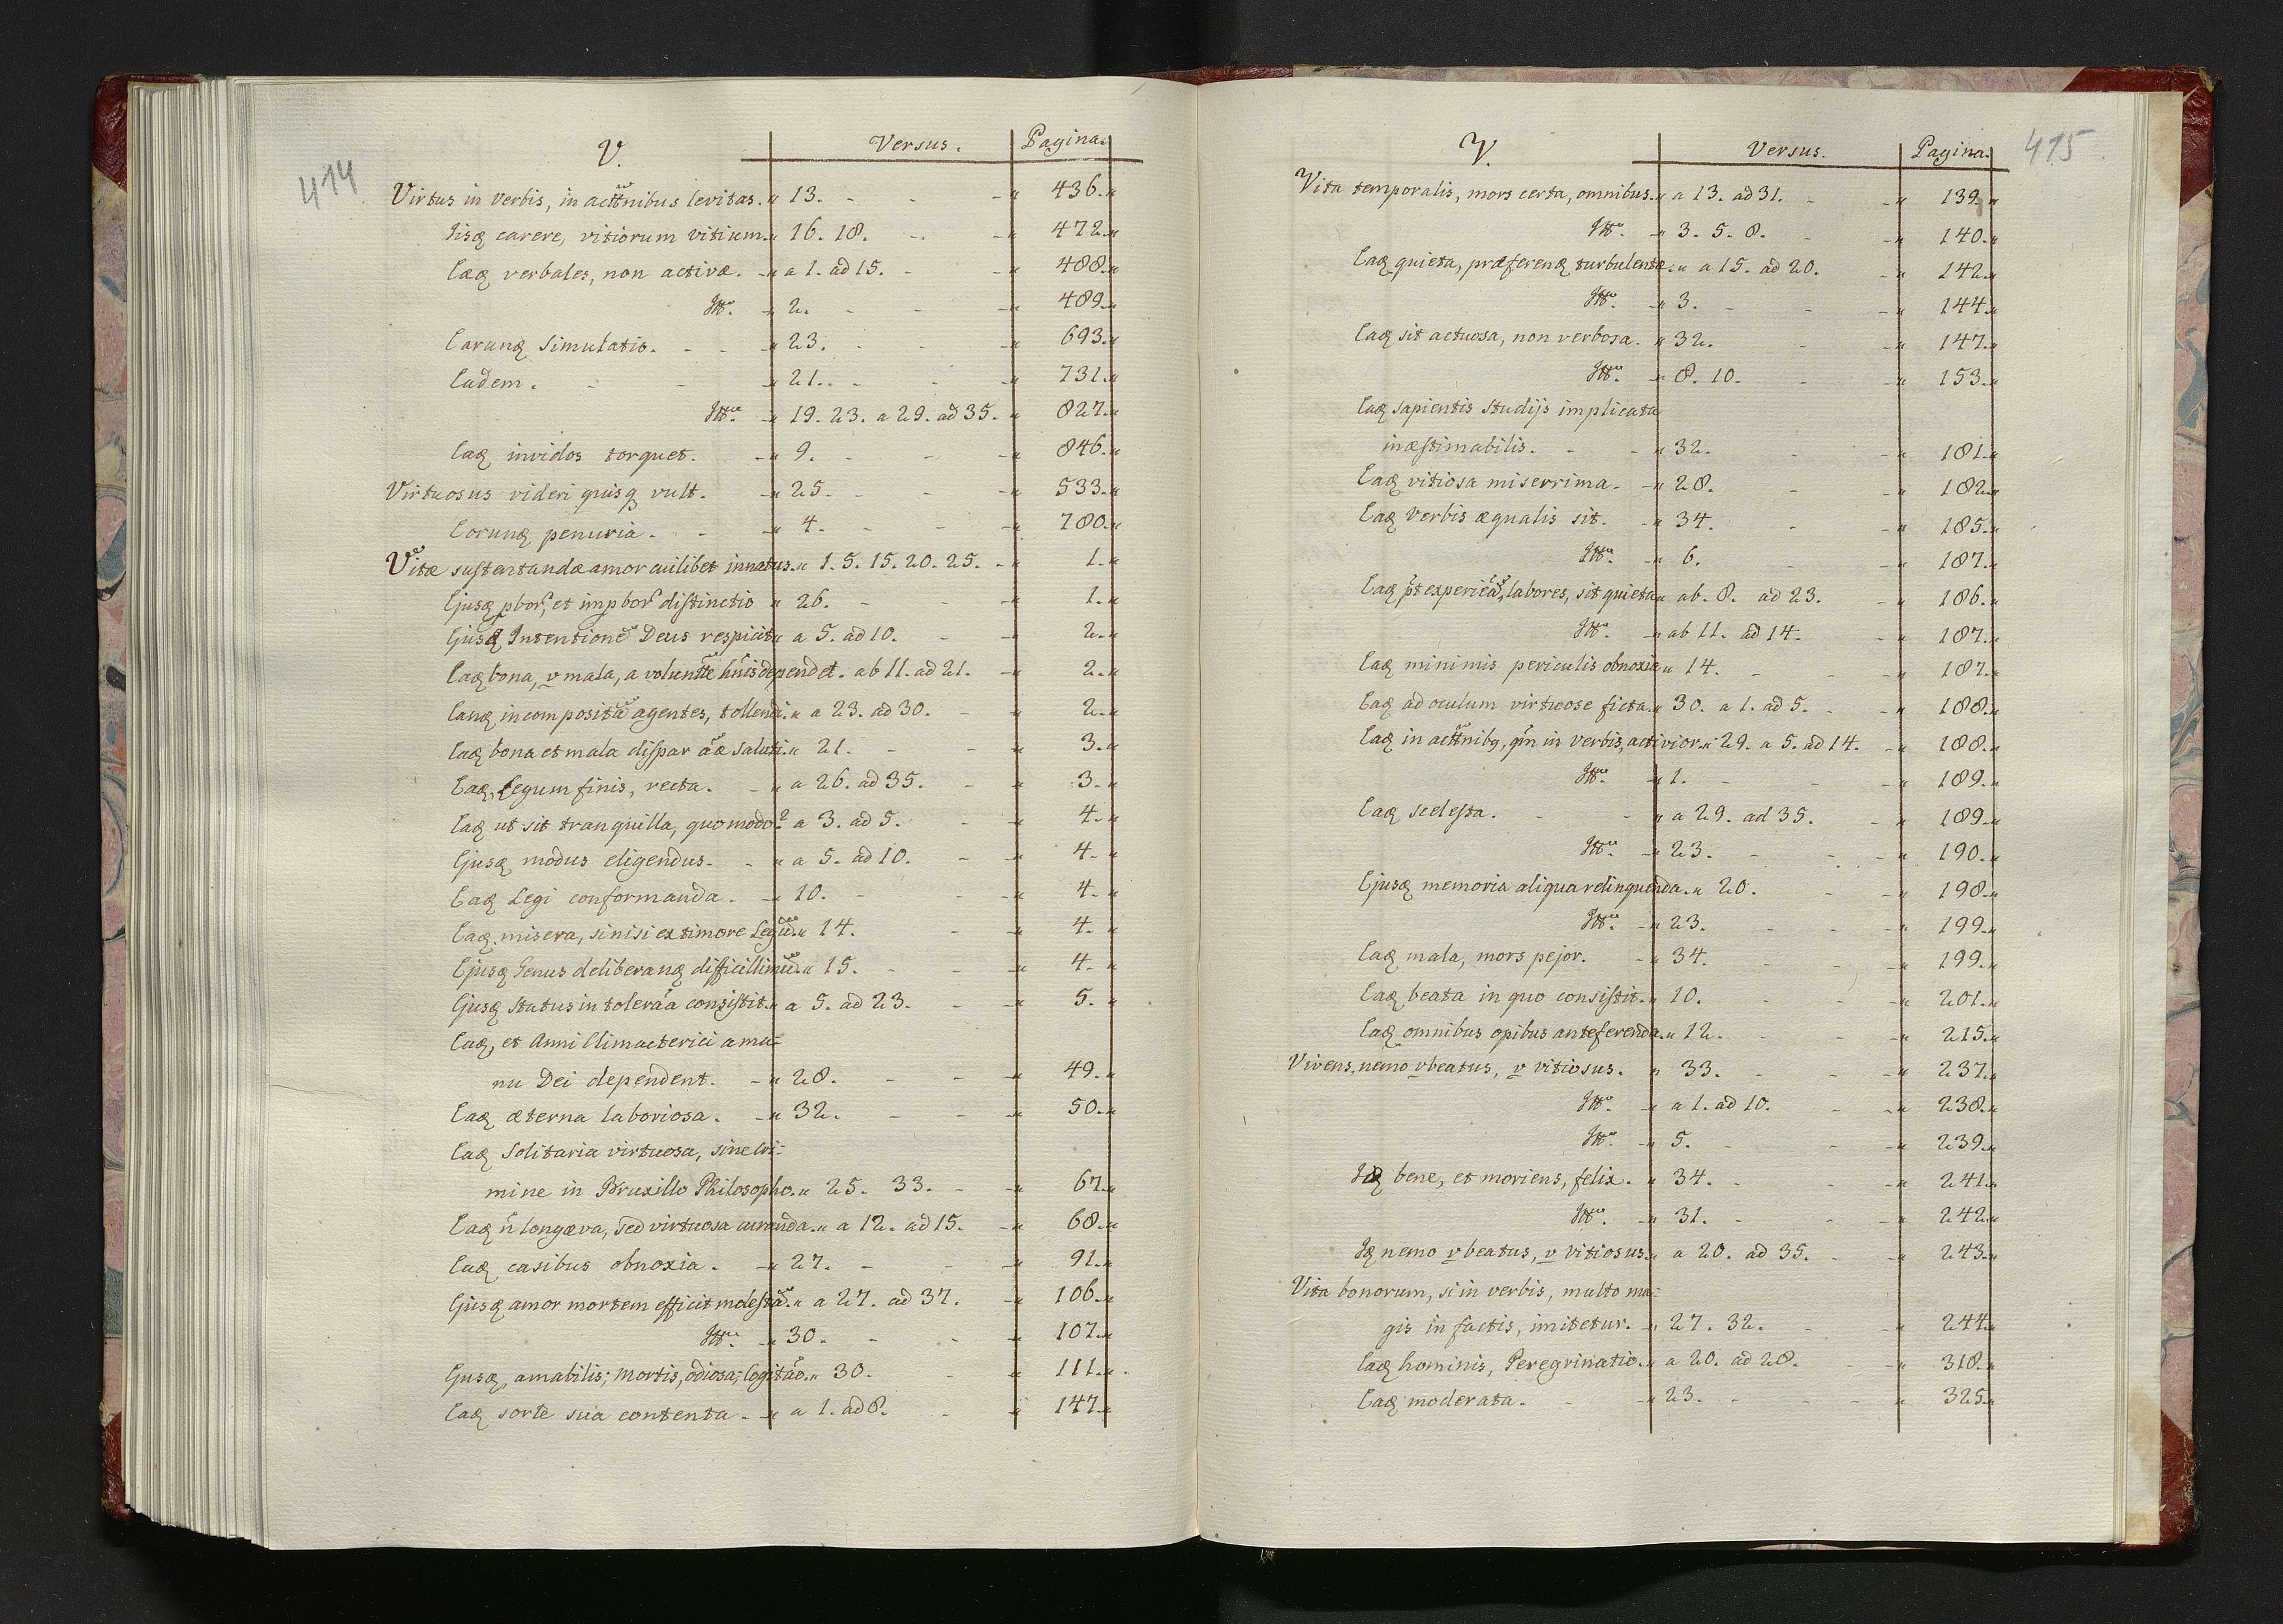 414
V. Versus. Pagina.
Virtus in verbis, in actnibus levitas. 13. 436.
Iisq carere, vitiorum vitium. 16. 18. 472.
Eæq verbales, non activæ. a 1. ad 15. 488.
Itt. 2. 489.
Earunq simulatio. 23. 693.
Eadem. 21. 731.
Itt. 19. 23. a 29. ad 35. 827.
Eaq invidos torquet. 9. 846.
Virtuosus videri quisq vult. 25. 533.
Eorunq penuria. 4. 780.
Vitæ sustentandæ amor cuilibet innatus. 1. 5. 15. 20. 25. 1.
Ejusq pbor, et impbor distinctio 26. 1.
Ejusq Intentionē Deus respicit a 5. ad 10. 2.
Eaq bona, v mala, a voluntte hnis dependet. ab 11. ad 21. 2.
Eanq incompositā agentes, tollendi. a 23. ad 30. 2.
Eaq bona et mala dispar aæ saluti. 21. 3.
Eaq, Legum finis, recta. a 26. ad 35. 3.
Eaq ut sit tranquilla, quomodo? a 3. ad 5. 4.
Ejusq modus eligendus. a 5. ad 10. 4.
Eaq Legi conformanda. 10. 4.
Eaq misera, si nisi ex timore Legū. 14. 4.
Ejusq Genus deliberanq difficillimū. 15. 4.
Ejusq status in toleraa consistit. a 5. ad 23. 5.
Eaq, et Anni Climacterici a ma-
nu Dei dependent. 28. 49.
Eaq æterna laboriosa. 32. 50.
Eaq Solitaria virtuosa, sine cri-
mine in Bruxillo Philosopho. 25. 33. 67.
Eaq ñ longæva, sed virtuosa curanda. a 12. ad 15. 68.
Eaq casibus obnoxia. 27. 91.
Ejusq amor mortem efficit molestā. a 27. ad 37. 106.
Itt. 30. 107.
Ejusq, amabilis; mortis, odiosa; cogitāo. 30. 111.
Eaq sorte sua contenta. a 1. ad 8. 147.
415
V. Versus. Pagina.
Vita temporalis, mors certa, omnibus. a 13. ad 31. 139.
Itt. 3. 5. 8. 140.
Eaq quieta, præferenq turbulentæ. a 15. ad 20. 142.
Itt. 3. 144.
Eaq sit actuosa, non verbosa. 32. 147.
Itt. 8. 10. 153.
Eaq sapientis studijs implicata
inæstimabilis. 32. 181.
Eaq vitiosa miserrima. 28. 182.
Eaq verbis æqualis sit. 34. 185.
Itt. 6. 187.
Eaq pt experieā, labores, sit quieta ab. 8. ad 23. 186.
Itt. ab 11. ad 14. 187.
Eaq minimis periculis obnoxia 14. 187.
Eaq ad oculum virtuose ficta. 30. a 1. ad 5. 188.
Eaq in actnibq, qm in verbis, activior. 29. a 5. ad 14. 188.
Itt. 1. 189.
Eaq scelesta. a 29. ad 35. 189.
Itt. 23. 190.
Ejusq memoria aliqua relinquenda. 20. 198.
Itt. 23. 199.
Eaq mala, mors pejor. 34. 199.
Eaq beata in quo consistit. 10. 201.
Eaq omnibus opibus anteferenda. 12. 215.
Vivens, nemo v beatus, v vitiosus. 33. 237.
Itt. a 1. ad 10. 238.
Itt. 5. 239.
Iq bene, et moriens, felix. 34. 241.
Itt. 31. 242.
Iq nemo v beatus, v vitiosus. a 20. ad 35. 243.
Vita bonorum, si in verbis, multo ma-
gis in factis, imitetur. 27. 32. 244.
Eaq hominis, Peregrinatio. a 20. ad 28. 318.
Eaq moderata. 23. 325.